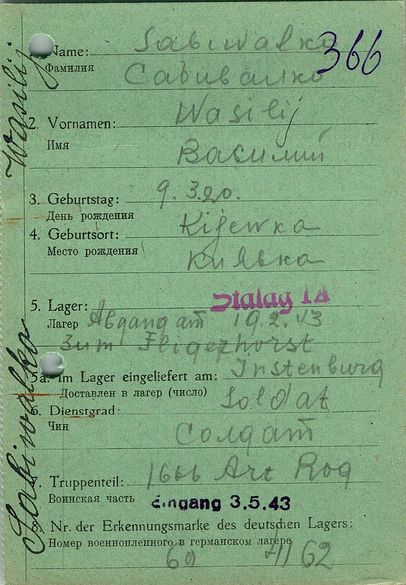 Wasilij
Sabiwalko
366
1. Name: Sabiwalko
Фамилия Сабивалко
2. Vornamen: Wasilij
Имя Василий
3. Geburtstag: 9.3.20.
День рождения
4. Geburtsort: Kijewka
Место рождения Киявка
5. Lager: Stalag IA
Лагерь Abgang am 19.2.43
zum Fliegerhorst
5a. Im Lager eingeliefert am: Instenburg
Доставлен в лагерь (число)
6. Dienstgrad: Soldat
Чин Солдат
7. Truppenteil: 1666 Art Reg
Воинская часть Eingang 3.5.43
8. Nr. der Erkennungsmarke des deutschen Lagers:
Номер военнопленного в германском лагере
60